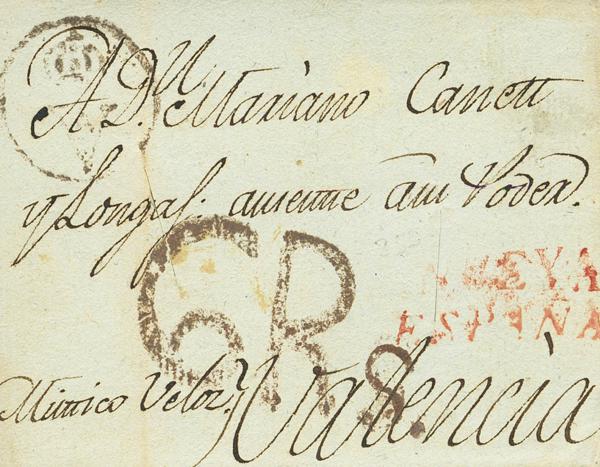 A D.n Mariano Canett
y Longas. ausente a su Poder.
6R.s.
ESPAÑA
Musico Veloz. Valencia